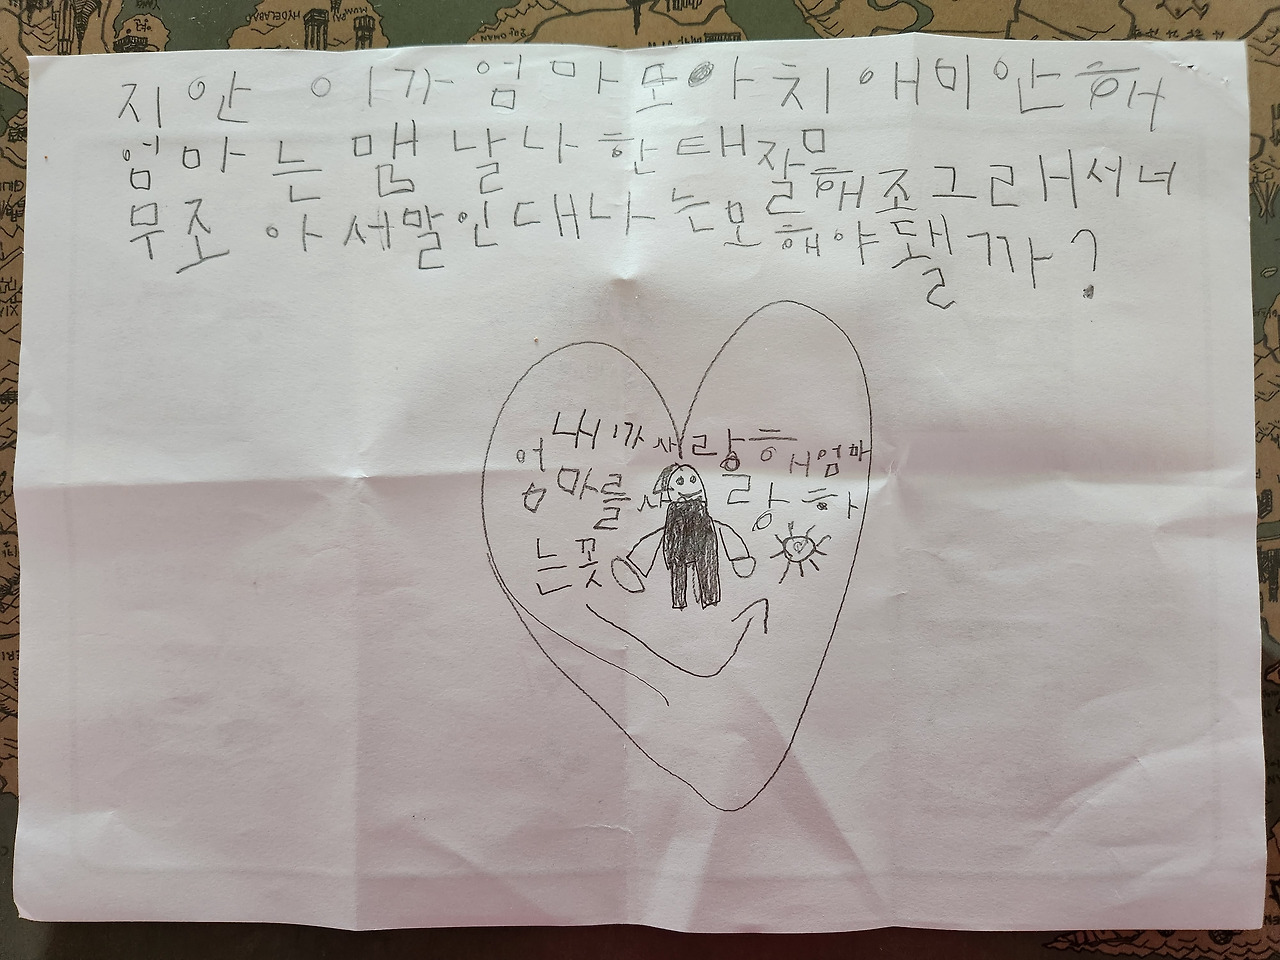 지안 이가 엄마 모아치 애미안 해
엄마는 맴날나한태잘 해조그래서너
무조아세말인대나는모해야됄까?
내가사랑하
엄마를사랑하
는꽃
해엄마